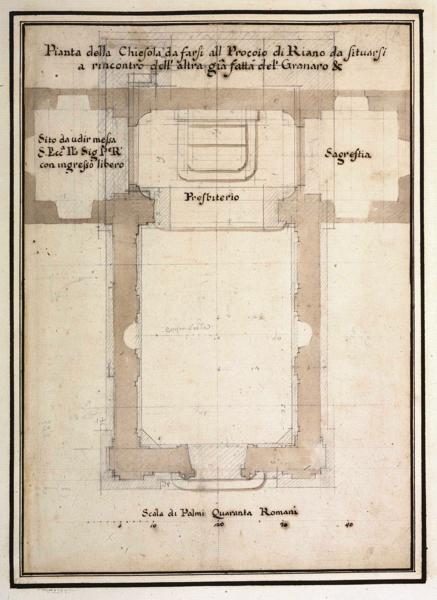 Pianta della Chiesola da farsi all Procoio di Riano da situarsi
a rincontro dell' altra già fatta del' Granaro &
Sito da udir messa
S. Ecc. Il Sig. P. R.
con ingresso libero
Sagrestia
Presbiterio
Scala di Palmi Quaranta Romani
10
20
40